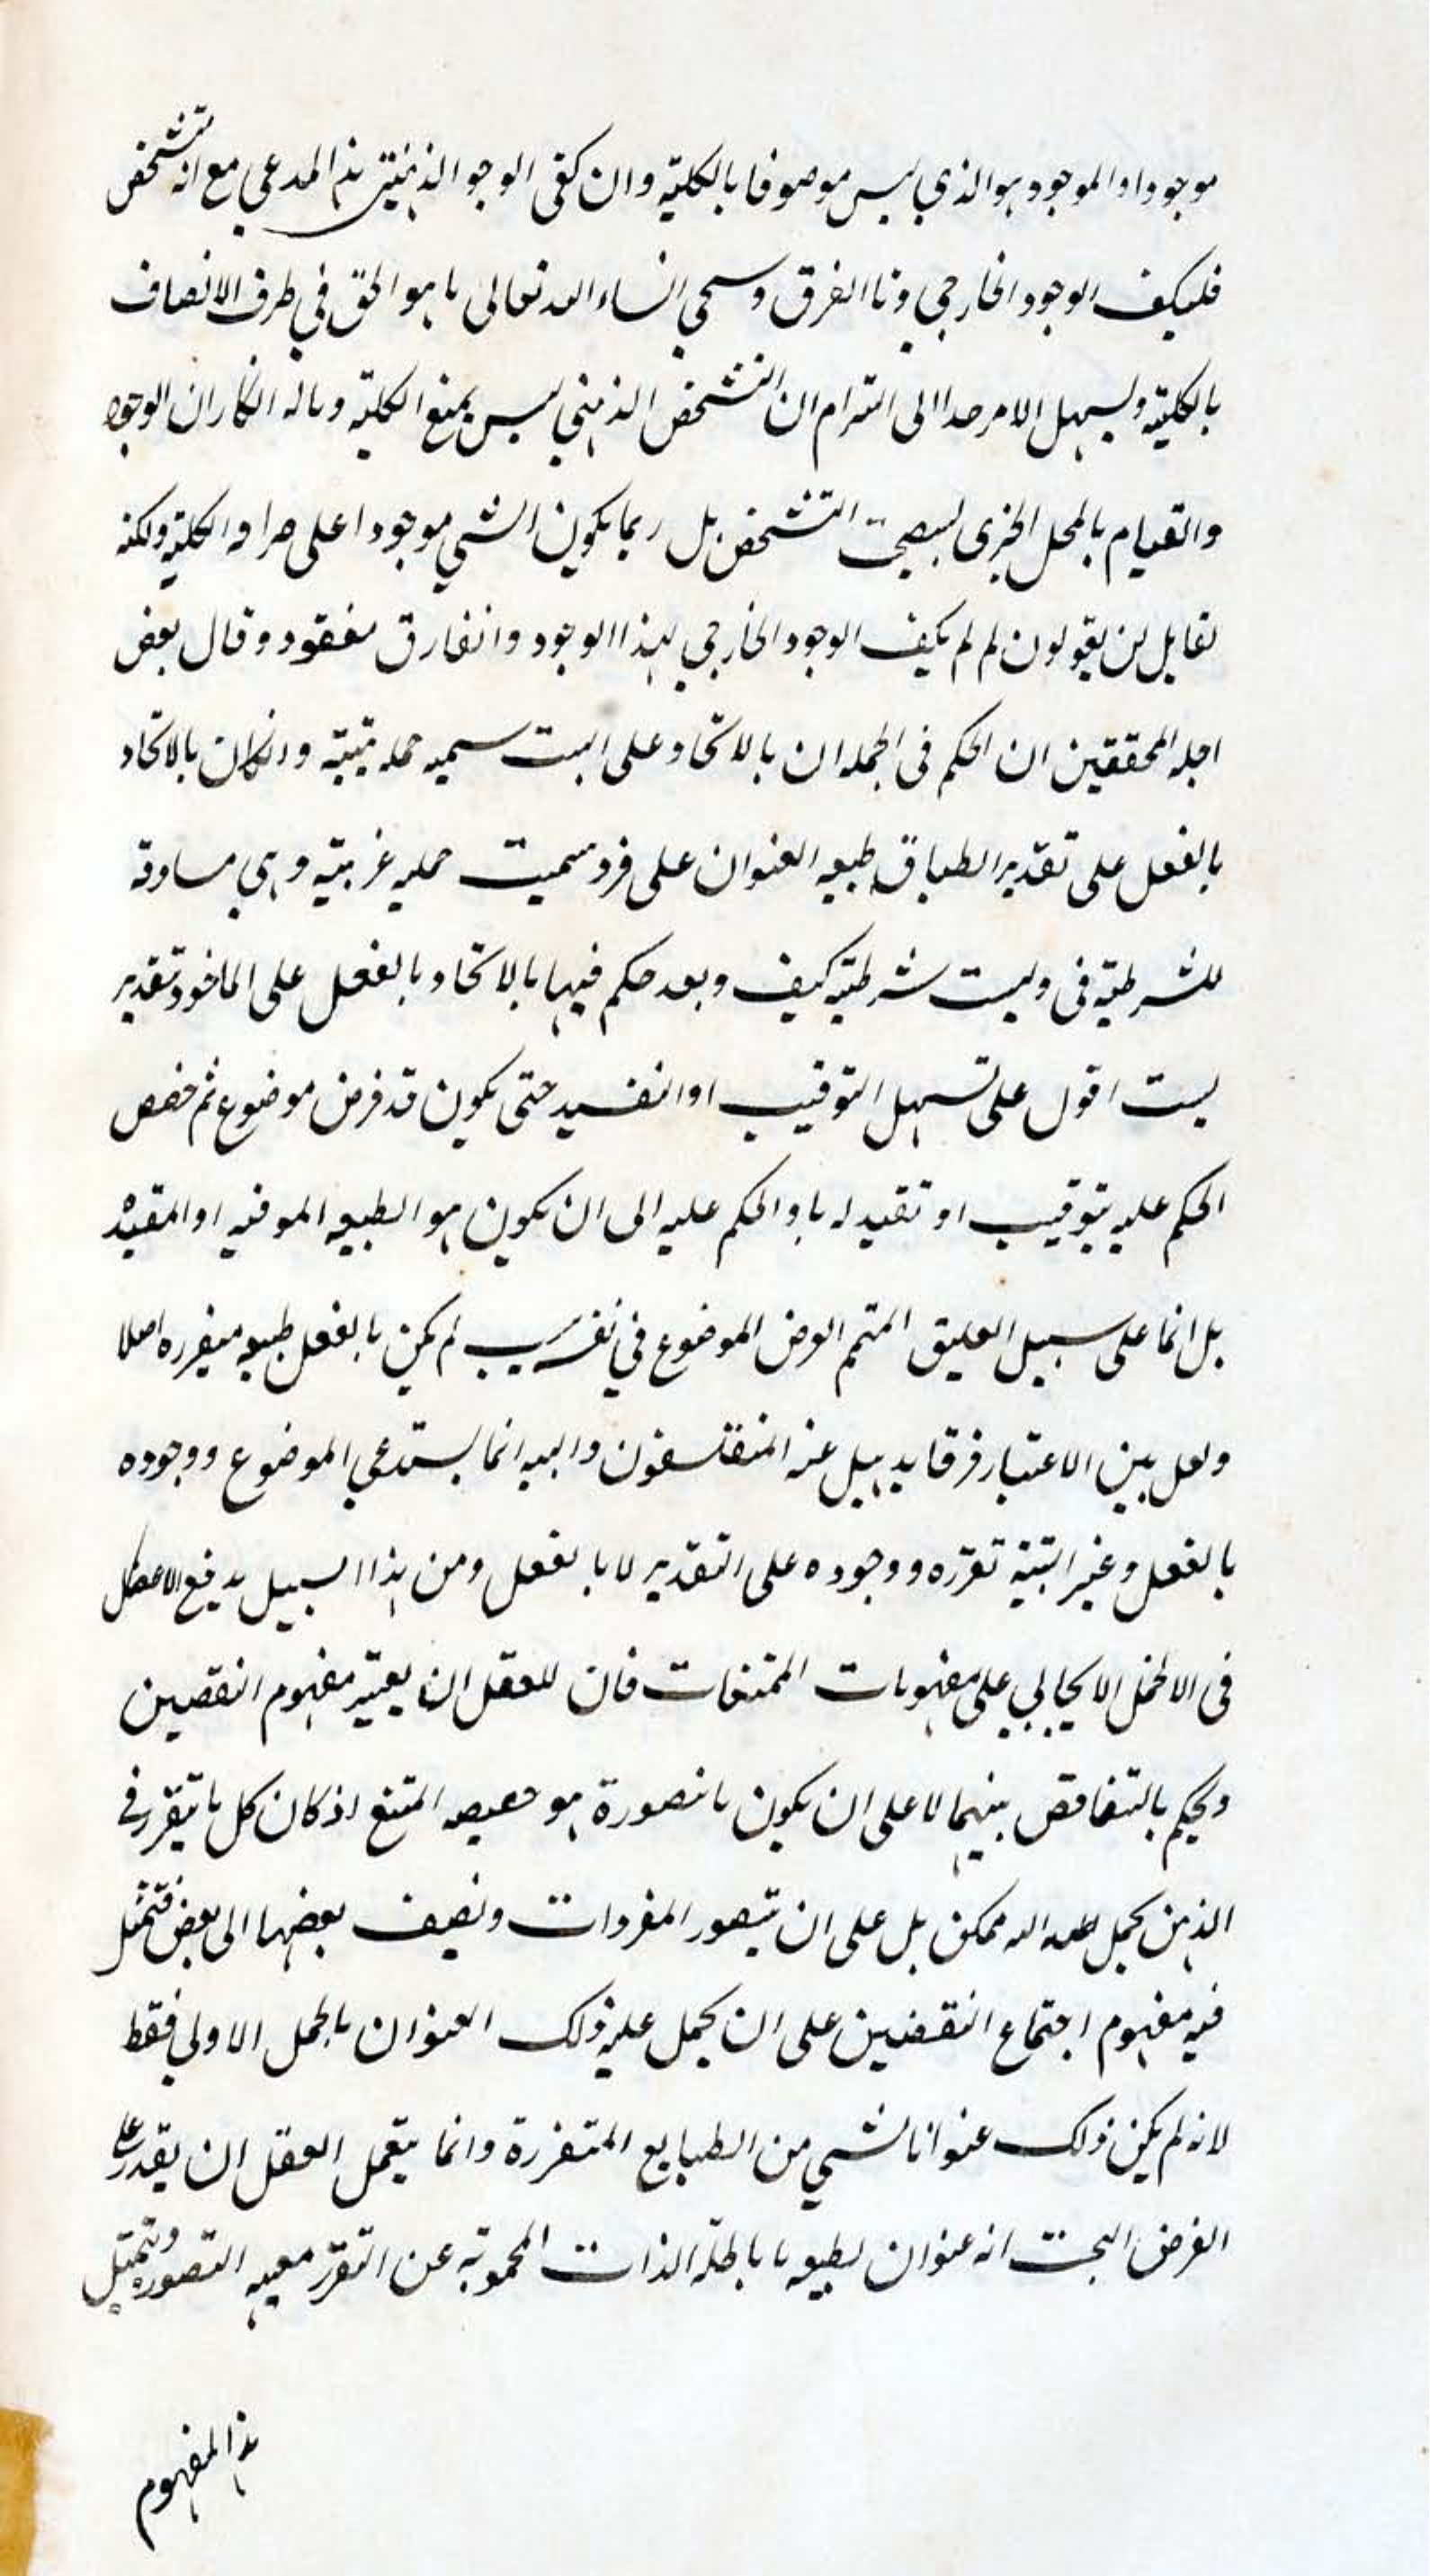 موجودا والموجود هو الذي ليس موصوفا بالكلية وان كفى الوجود الذهني هذا المدعى مع انه تشخص
فليكف الوجود الخارجي وما الفرق وسيجي انشاء الله تعالى ما هو الحق في ظرف الاتصاف
بالكلية وليسهل الامر جدا الى التزام ان التشخص الذهني ليس يمنع الكلية وماله انكار ان الوجود
والقيام بالمحل الجزى ليصحب التشخص بل ربما يكون الشي موجودا على صرافه الكلية ولكنه
لقايل ان يقولون لم لم يكف الوجود الخارجي لهذا الوجود والفارق مفقود وقال بعض
اجله المحققين ان الحكم فى الجمله ان بالاتحاد على البت سميه حمليه بتيه وان كان بالاتحاد
بالفعل على تقدير الطباق طبيعه العنوان على فرد سميت حمليه غير بتيه وهي مساوقه
للشرطية في وليست شرطية كيف وبعد حكم فيها بالاتحاد بالفعل على الماخوذ تقدير
ليست اقول على تسهيل التوقيت او التقييد حتى يكون قد فرض موضوع ثم خصص
الحكم عليه بتوقيت او تقييد له با والحكم عليه الى ان يكون هو الطبيعه الموقته او المقيده
بل انما على سبيل التعليق المتمم الوض الموضوع في نفسه حيث لم يكن بالفعل طبيعه متقرره اصلا
ولعل بين الاعتبار فرقا يذهل عنه المتفلسفون والبته انما يستدعي الموضوع ووجوده
بالفعل وغير البتية تقرره ووجوده على التقدير لا بالفعل ومن هذا السبيل يدفع الاعضال
فى الاحمل الايجابي على مفهومات الممتنعات فان للعقل ان يعتبر مفهوم النقيضين
ويحكم بالتناقض بينهما لا على ان يكون ما تصوره هو حقيقه الممتنع اذ كان كل ما يتقرر في
الذهن يحمل عليه انه ممكن بل على ان يتصور المفردات ونضيف بعضها الى بعض فتمثل
فيه مفهوم اجتماع النقيضين على ان يحمل عليه ذلك العنوان بالحمل الاولي فقط
لانه لم يكن ذلك عنوانا لشي من الطبايع المتقررة وانما يتعمل العقل ان يقدر على
الفرض البحت انه عنوان لطبيعه ما باطلة الذات المحجوبة عن التقرر معيه التصور وتمثيل
هذا المفهوم